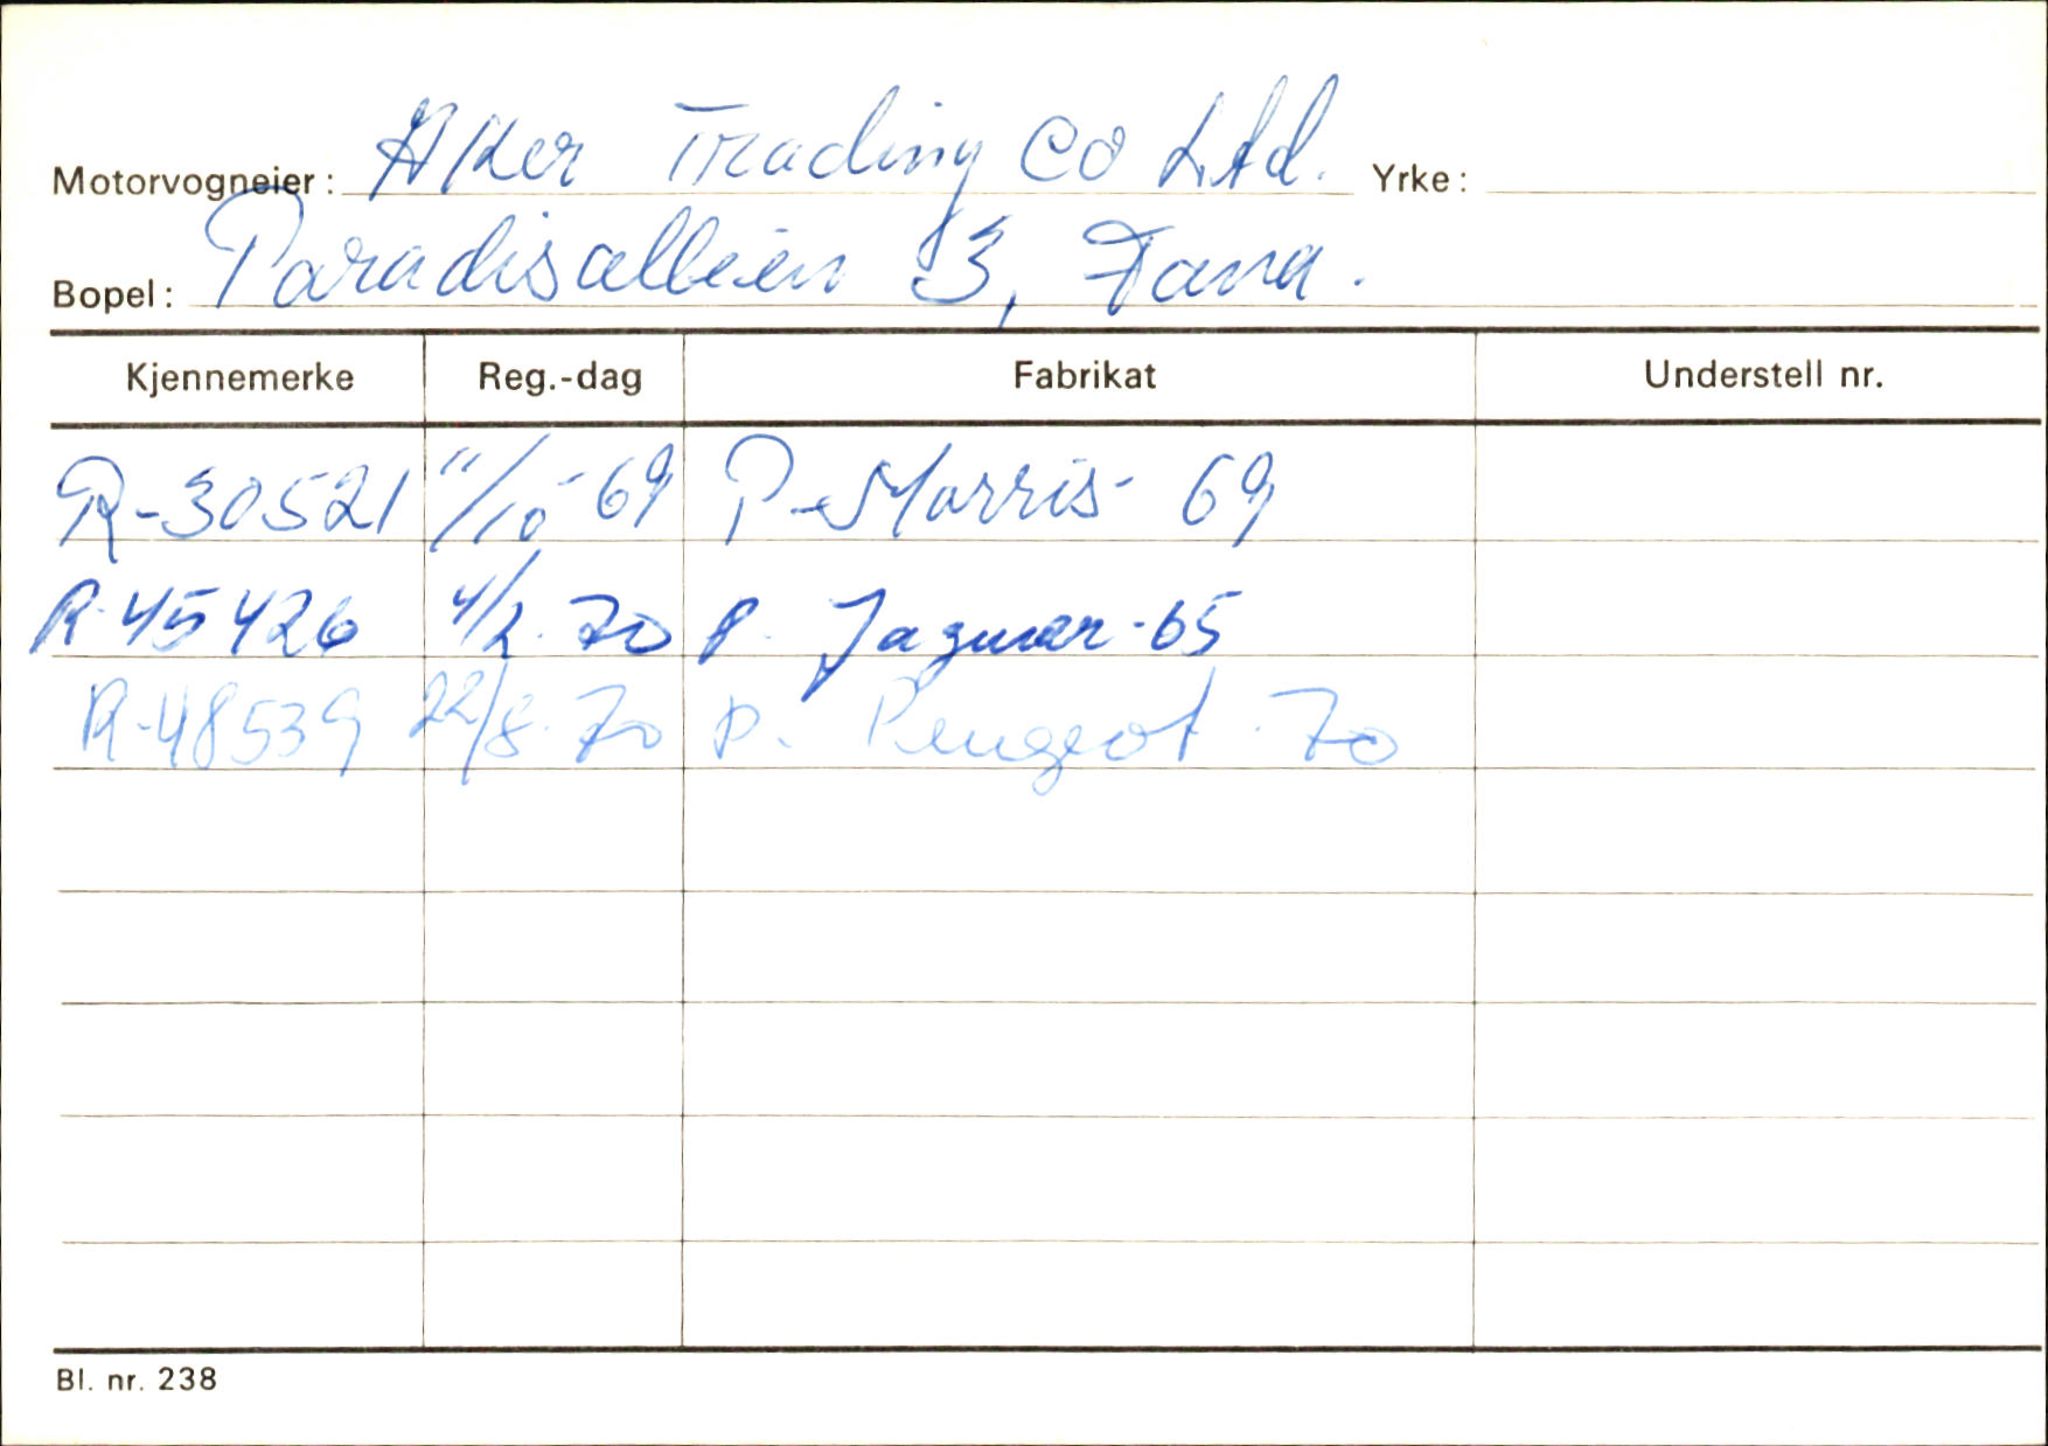 Motorvogneier: Aker Trading Co Ltd. Yrke:
Bopel: Paradisalleen 3, Fana.
Kjennemerke Reg.-dag Fabrikat Understell nr.
R-30521 11/10-69 P-Morris- 69
R-45426 4/2.70 P. Jaguar-65
R-48539 22/8.70 P. Peugeot-70
Bl. nr. 238